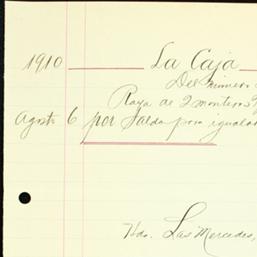 1910 La Caja
Del Primero
Raya de 2 monteros
Agosto 6 por Saldo para igualar
Hda. Las Mercedes,